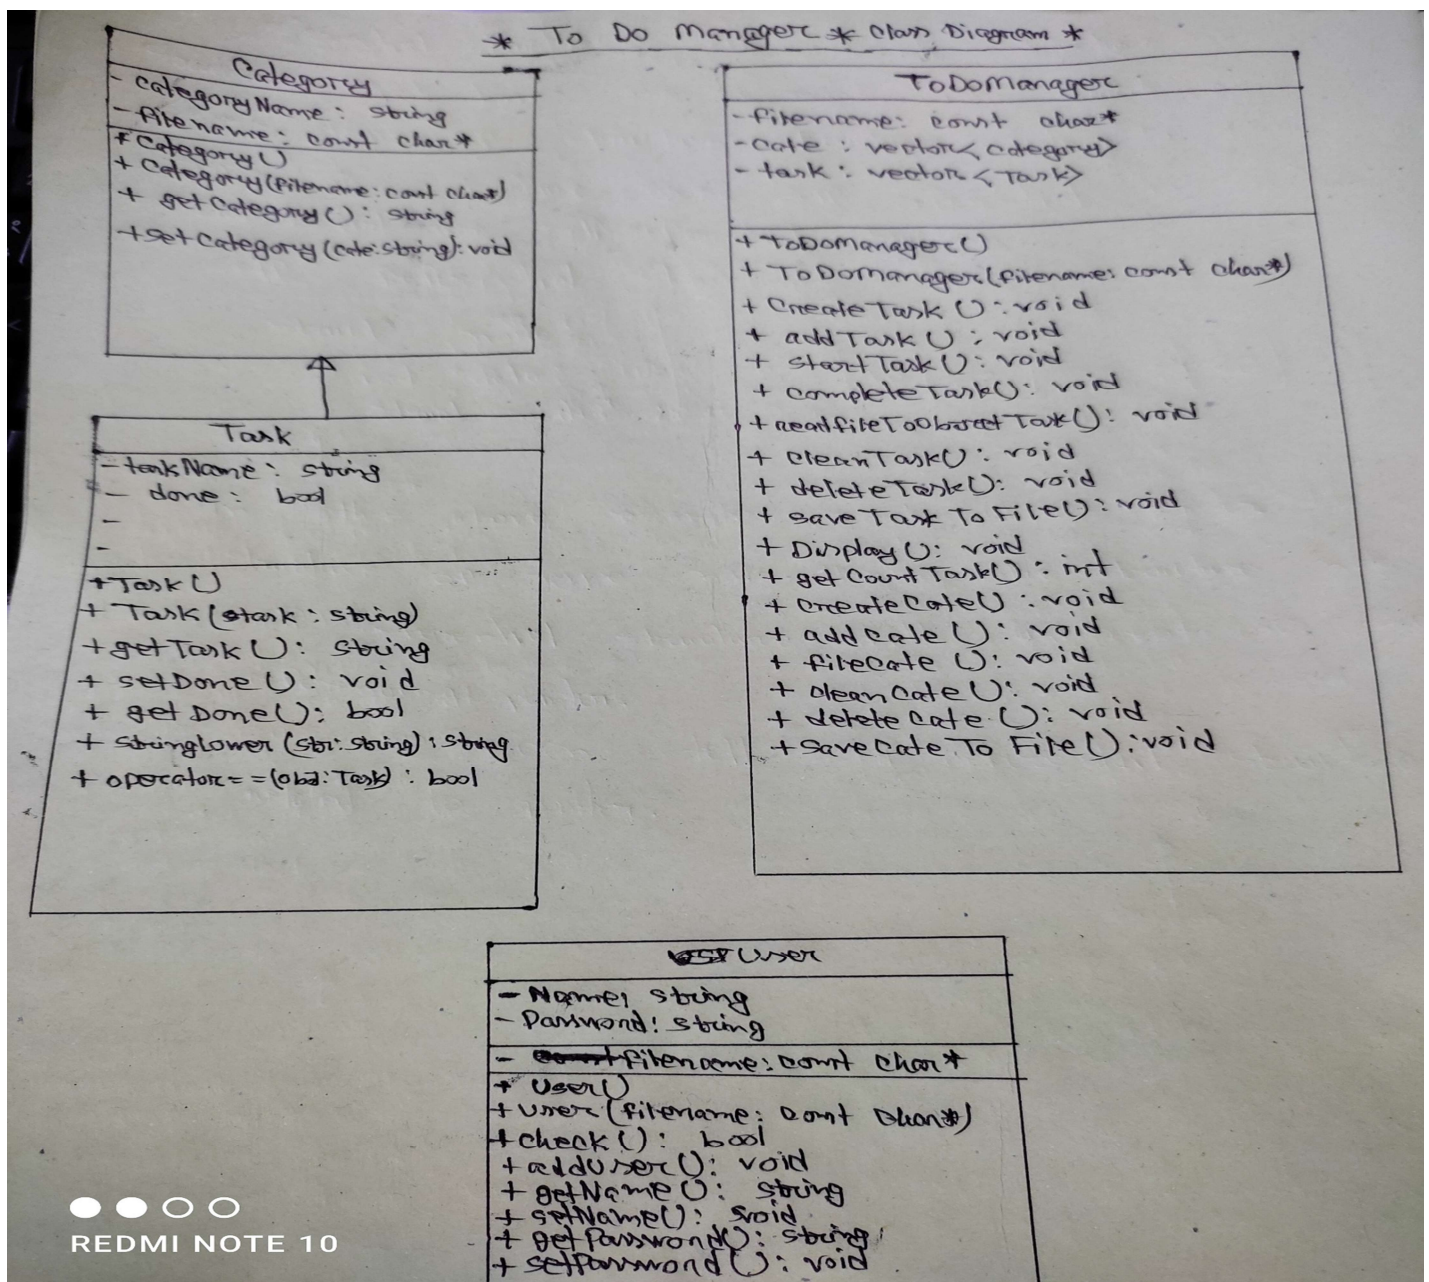 * To Do Manager * Class Diagram *
Category
- categoryName : string
- filename : const char*
+ Category()
+ Category(filename: const char*)
+ getCategory() : string
+ setCategory(cate:string): void
Task
- taskName : string
- done : bool
-
-
+ Task()
+ Task(stask : string)
+ getTask() : string
+ setDone() : void
+ getDone() : bool
+ stringLower (str: string) : string
+ operator==(obj:Task) : bool
ToDoManager
- filename: const char*
- cate : vector<category>
- task : vector<Task>
+ ToDoManager()
+ ToDoManager(filename: const char*)
+ CreateTask () : void
+ addTask () : void
+ startTask () : void
+ completeTask() : void
+ readfileToObject Task() : void
+ cleanTask() : void
+ deleteTask() : void
+ saveTask To File() : void
+ Display () : void
+ getCountTask() : int
+ createCate() : void
+ addCate () : void
+ fileCate () : void
+ cleanCate () : void
+ deleteCate () : void
+ saveCate To File() : void
User
- Name: string
- Password: string
- filename: const char*
+ User()
+ User (filename: const char*)
+ check() : bool
+ addUser() : void
+ getName() : string
+ setName() : void
+ getPassword() : string
+ setPassword () : void
REDMI NOTE 10